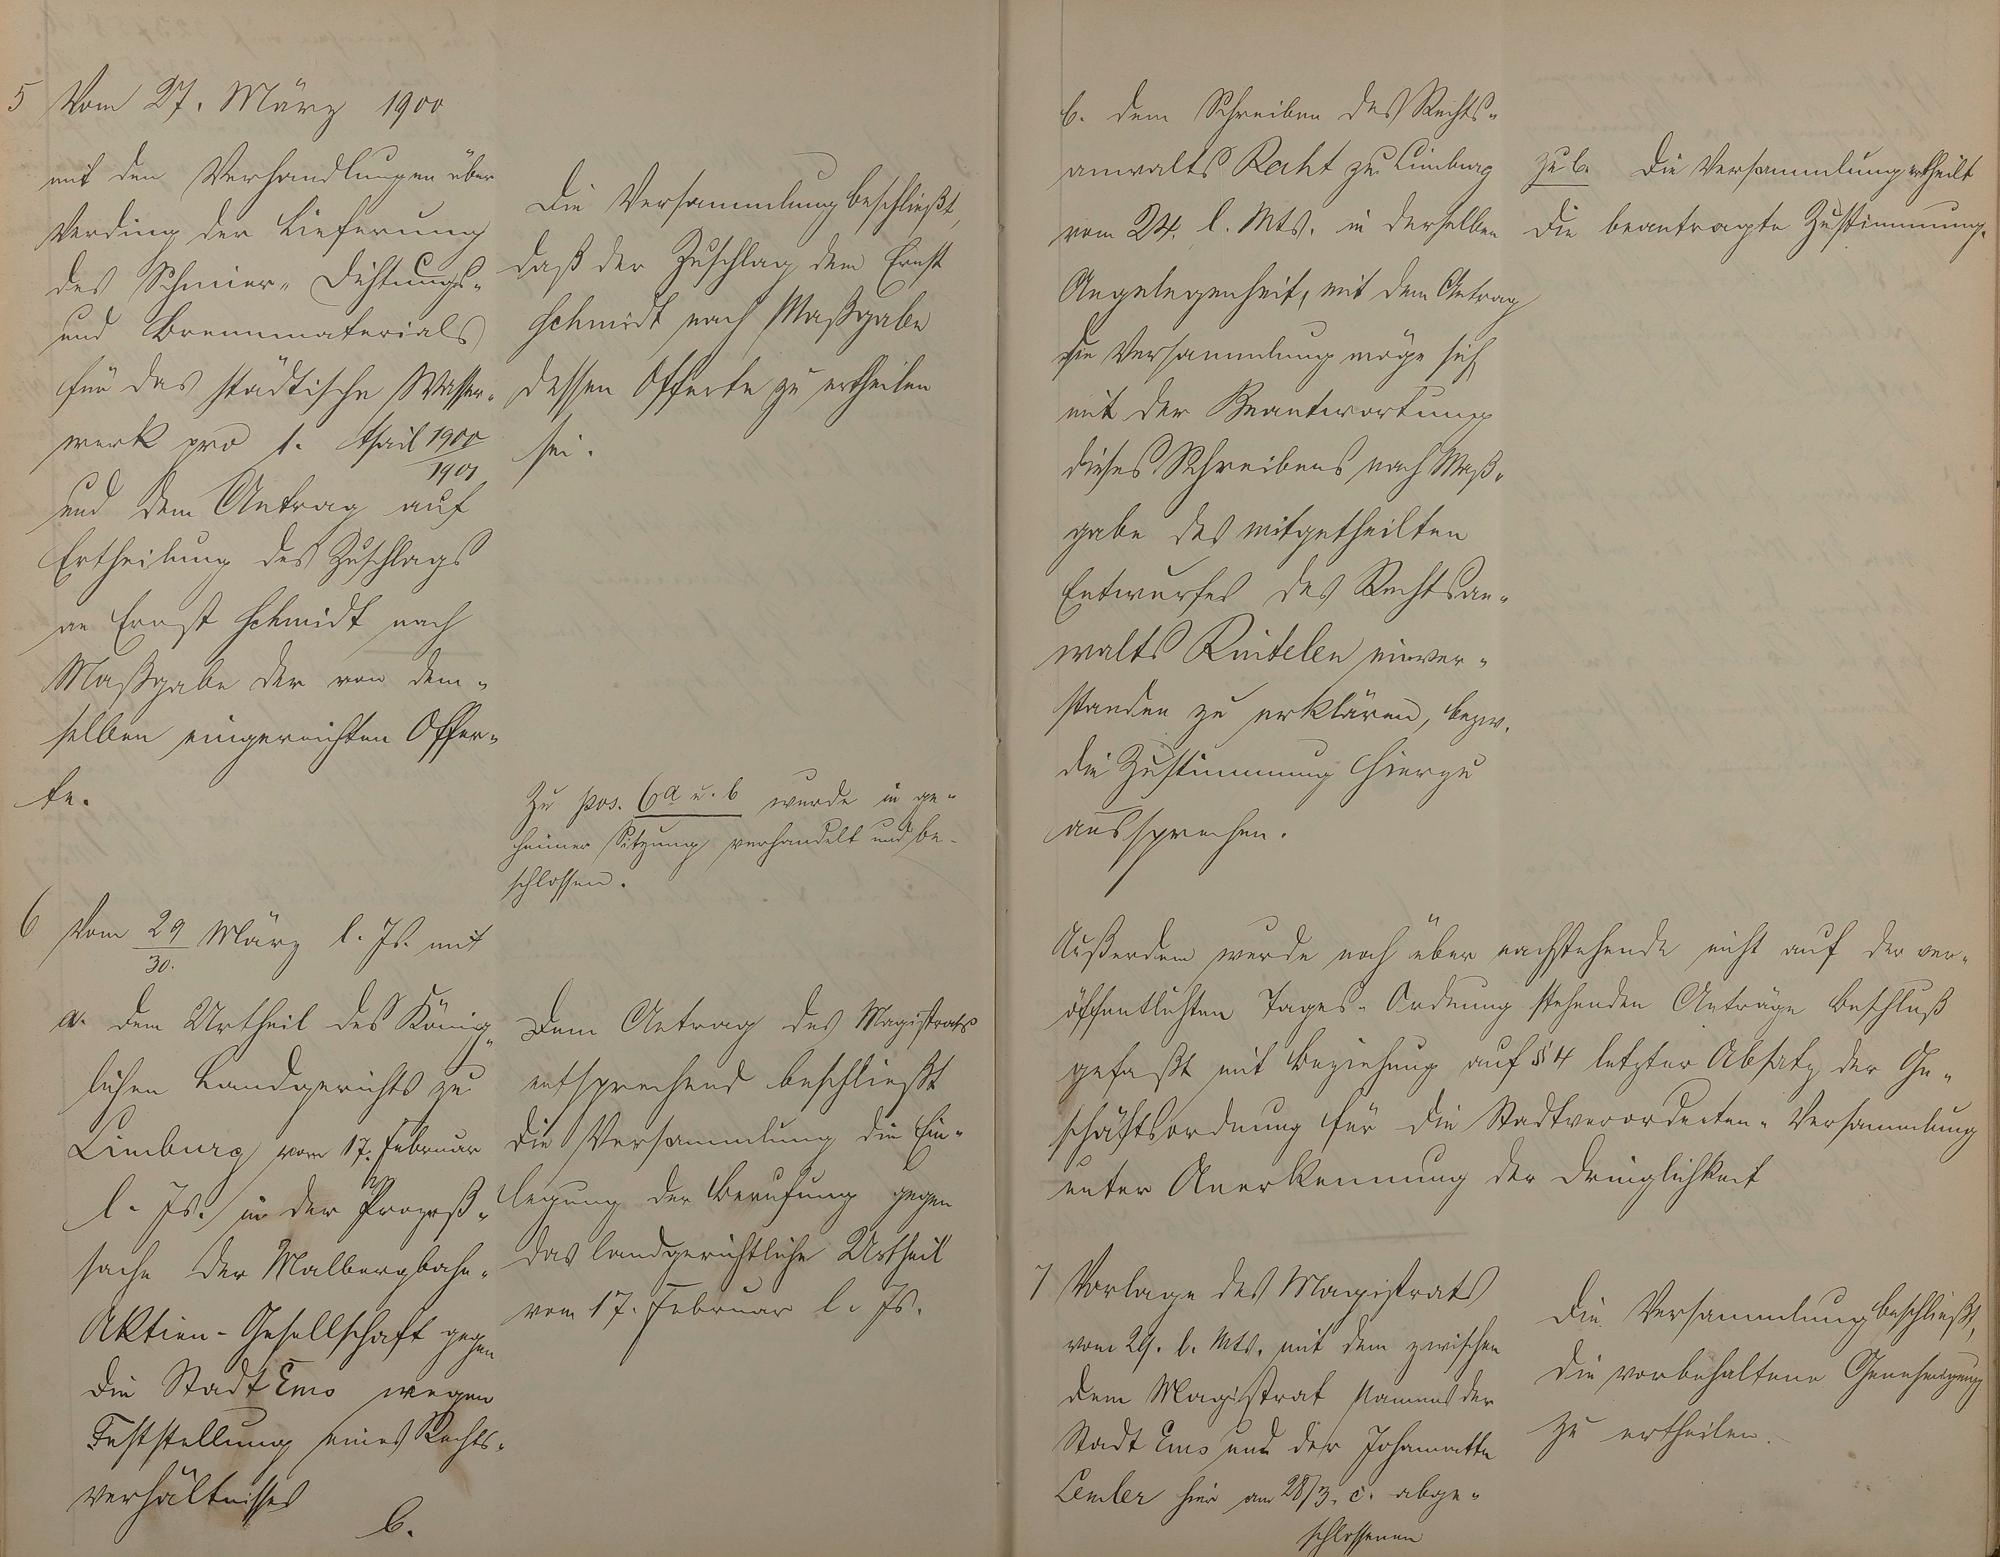 5 Vom 27. März 1900
mit den Verhandlungen über
Verding der Lieferung
des Schmier-, Dichtungs-
und Brennmaterials
für das städtische Wasser-
werk pro 1. April 1900/1901
und dem Antrag auf
Ertheilung des Zuschlags
an Ernst Schmidt nach
Maßgabe der von dem-
selben eingereichten Offer-
te.
Die Versammlung beschließt,
daß der Zuschlag dem Ernst
Schmidt nach Maßgabe
dessen Offerte zu ertheilen
sei.
Zu pos. 6a u. b wurde in ge-
heimer Sitzung verhandelt und be-
schlossen.
6 Vom 29/30. März l. Js. mit
a. dem Urtheil des König-
lichen Landgerichts zu
Limburg vom 17. Februar
l. Js. in der Prozeß-
sache der Malbergbahn-
Aktien-Gesellschaft gegen
die Stadt Ems wegen
Feststellung eines Rechts-
verhältnisses
b.
Dem Antrag des Magistrats
entsprechend beschließt
die Versammlung die Ein-
legung der Berufung gegen
das landgerichtliche Urtheil
vom 17. Februar l. Js.
b. dem Schreiben des Rechts-
anwalts Raht zu Limburg
vom 24. l. Mts. in derselben
Angelegenheit, mit dem Antrag
die Versammlung möge sich
mit der Beantwortung
dieses Schreibens nach Maß-
gabe des mitgetheilten
Entwurfes des Rechtsan-
walts Rintelen einver-
standen zu erklären, bezw.
die Zustimmung hierzu
aussprechen.
zu b. Die Versammlung ertheilt
die beantragte Zustimmung.
Außerdem wurde noch über nachstehende nicht auf der ver-
öffentlichten Tages-Ordnung stehenden Anträge Beschluß
gefaßt mit Beziehung auf § 4 letzter Absatz der Ge-
schäftsordnung für die Stadtverordneten-Versammlung
unter Anerkennung der Dringlichkeit
7 Vorlage des Magistrats
vom 29. l. Mts. mit dem zwischen
dem Magistrat Namens der
Stadt Ems und der Johannette
Lemler hier am 28/3. c. abge-
schlossenen
Die Versammlung beschließt,
die vorbehaltene Genehmigung
zu ertheilen.